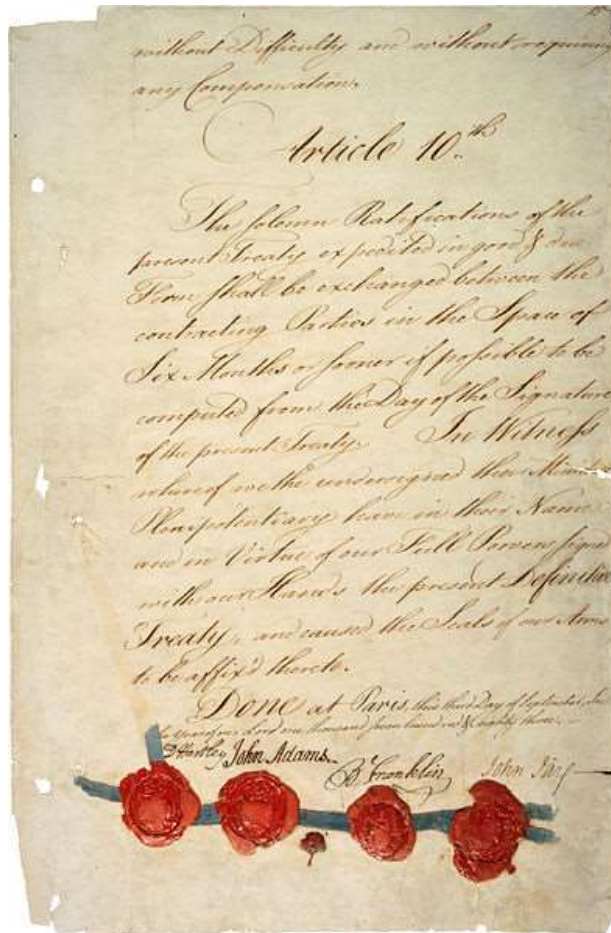 without Difficulty and without requiring
any Compensation.
Article 10.th
The solemn Ratifications of the
present Treaty expedited in good & due
Form shall be exchanged between the
contracting Parties in the Space of
Six Months or sooner if possible to be
computed from the Day of the Signature
of the present Treaty. In Witness
whereof we the undersigned their Ministers
Plenipotentiary have in their Name
and in Virtue of our Full Powers signed
with our Hands the present Definitive
Treaty, and caused the Seals of our Arms
to be affix'd thereto.
Done at Paris, this third Day of September, In
the Year of our Lord one thousand seven hundred & eighty three.
D Hartley John Adams B Franklin John Jay